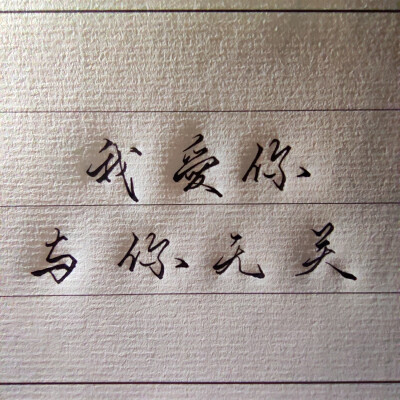 我愛你
与你无关